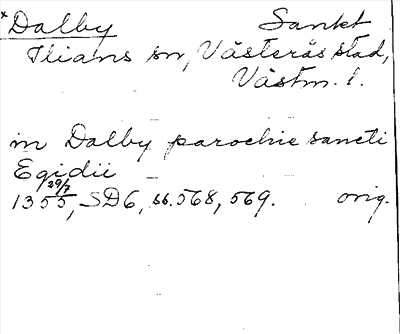 ×Dalby Sankt
Ilians sn, Västerås stad,
Västm. l.
in Dalby parochie sancti
Egidii
1355 29/7, SD6, ss. 568, 569. orig.